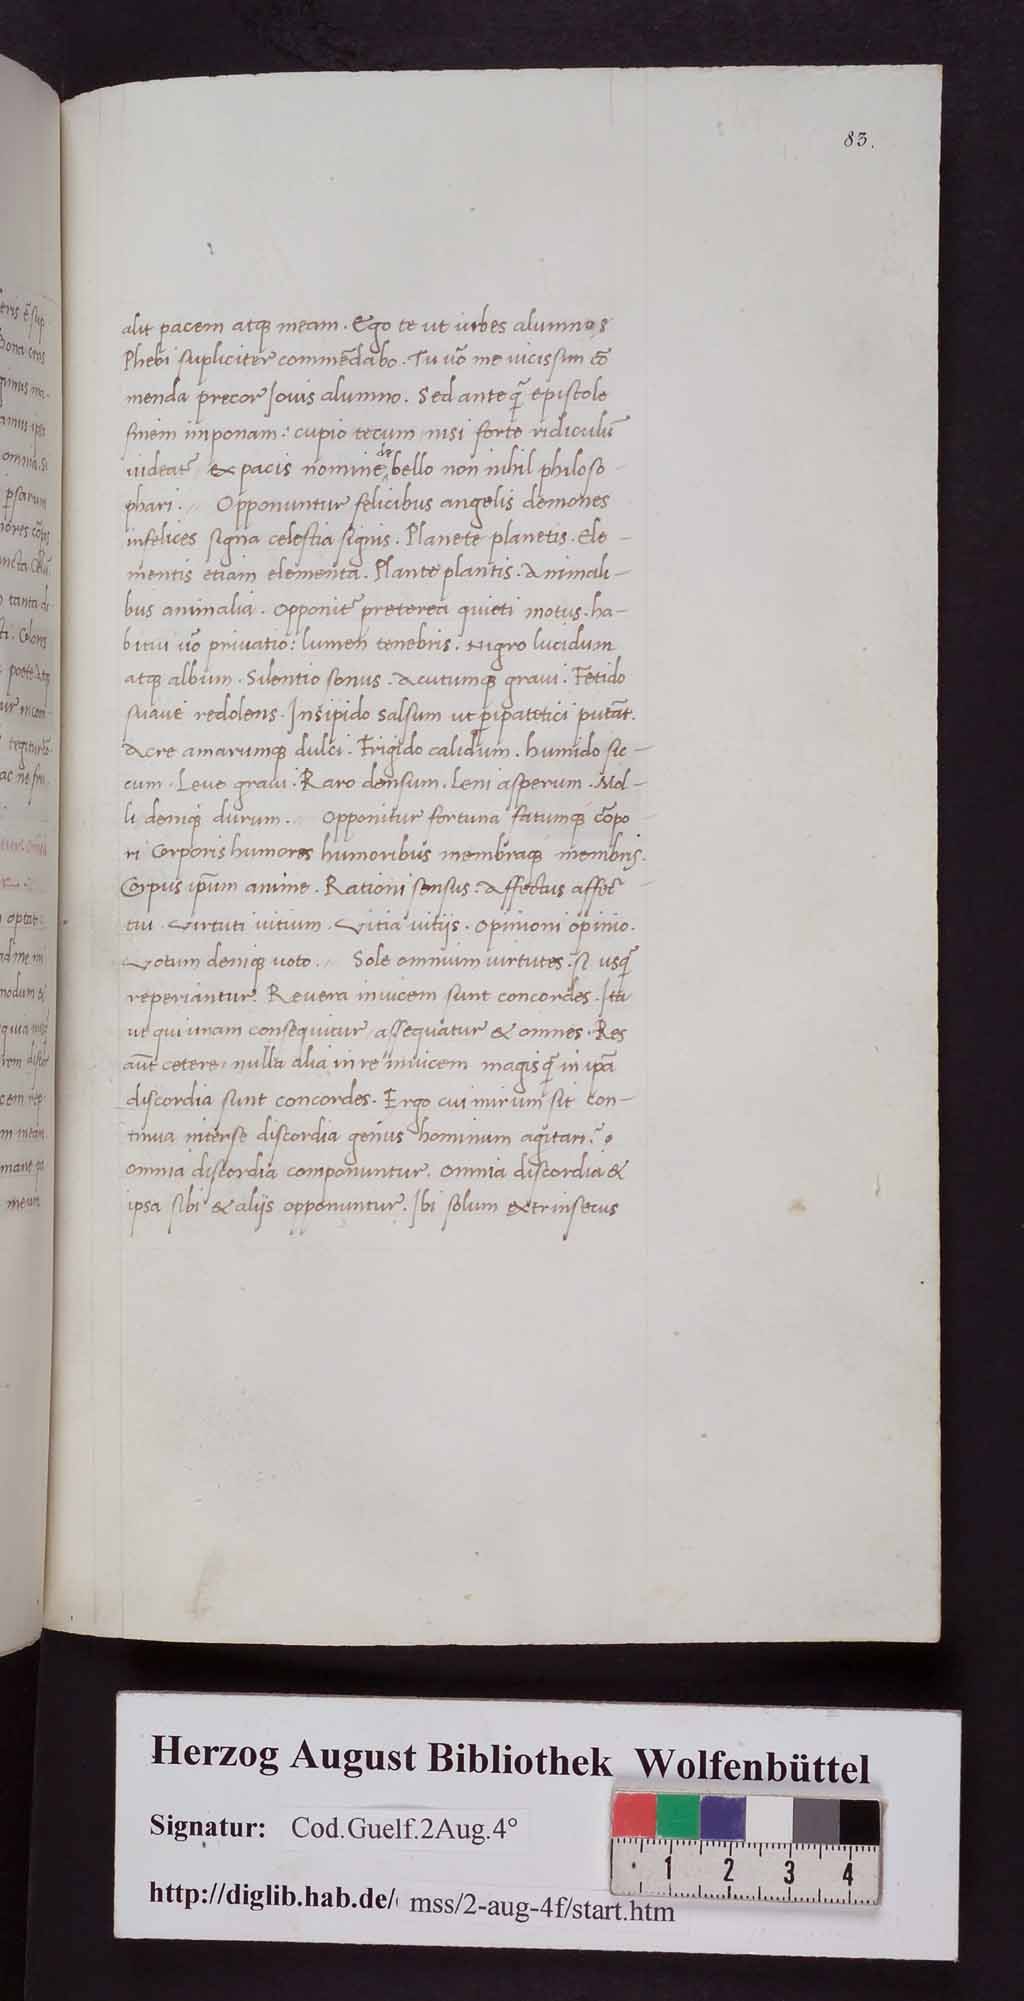 83.
alit pacem atq; meam. Ego te ut urbes alumnos
Phebi supliciter commēdabo. Tu uo͂ me uicissim cō
menda precor Iouis alumno. Sed ante q̃ epistole
finem imponam: cupio tecum nisi forte ridiculū
uideat᷑ ex pacis nomine de bello non nihil philoso-
phari. Opponuntur felicibus angelis demones
infelices signa celestia signis. Planete planetis. Ele-
mentis etiam elementa. Plante plantis. Animali-
bus animalia. Opponit᷑ preterea quieti motus. ha-
bitui uo͂ priuatio: lumen tenebris. Nigro lucidum
atq; album. Silentio sonus. Acutumq; graui. Fetido
suaue redolens. Insipido salsum ut peripatetici putāt.
Acre amarumq; dulci. Frigido calidum. humido sic-
cum. Leue graui. Raro densum. Leni asperum. Mol-
li deniq; durum. Opponitur fortuna fatumq; cōpo
ri Corporis humores humoribus membraq; membris.
Corpus ipsum anime. Rationi sensus. Affectus affec-
tui. Virtuti uitium. Vitia uitijs. Opinioni opinio.
Votum deniq; uoto. Sole omnium uirtutes. si usq̃
reperiantur. Reuera inuicem sunt concordes. Ita
ut qui unam consequitur assequatur & omnes. Res
aūt cetere nulla alia in re inuicem magis q̃ in ipa
discordia sunt concordes. Ergo cui mirum sit con-
tinua interse discordia genus hominum agitari?
omnia discordia componuntur. omnia discordia &
ipsa sibi & alijs opponuntur. Ibi solum extrinsecus
Herzog August Bibliothek Wolfenbüttel
Signatur: Cod.Guelf.2Aug.4°
1 2 3 4
http://diglib.hab.de/ mss/2-aug-4f/start.htm